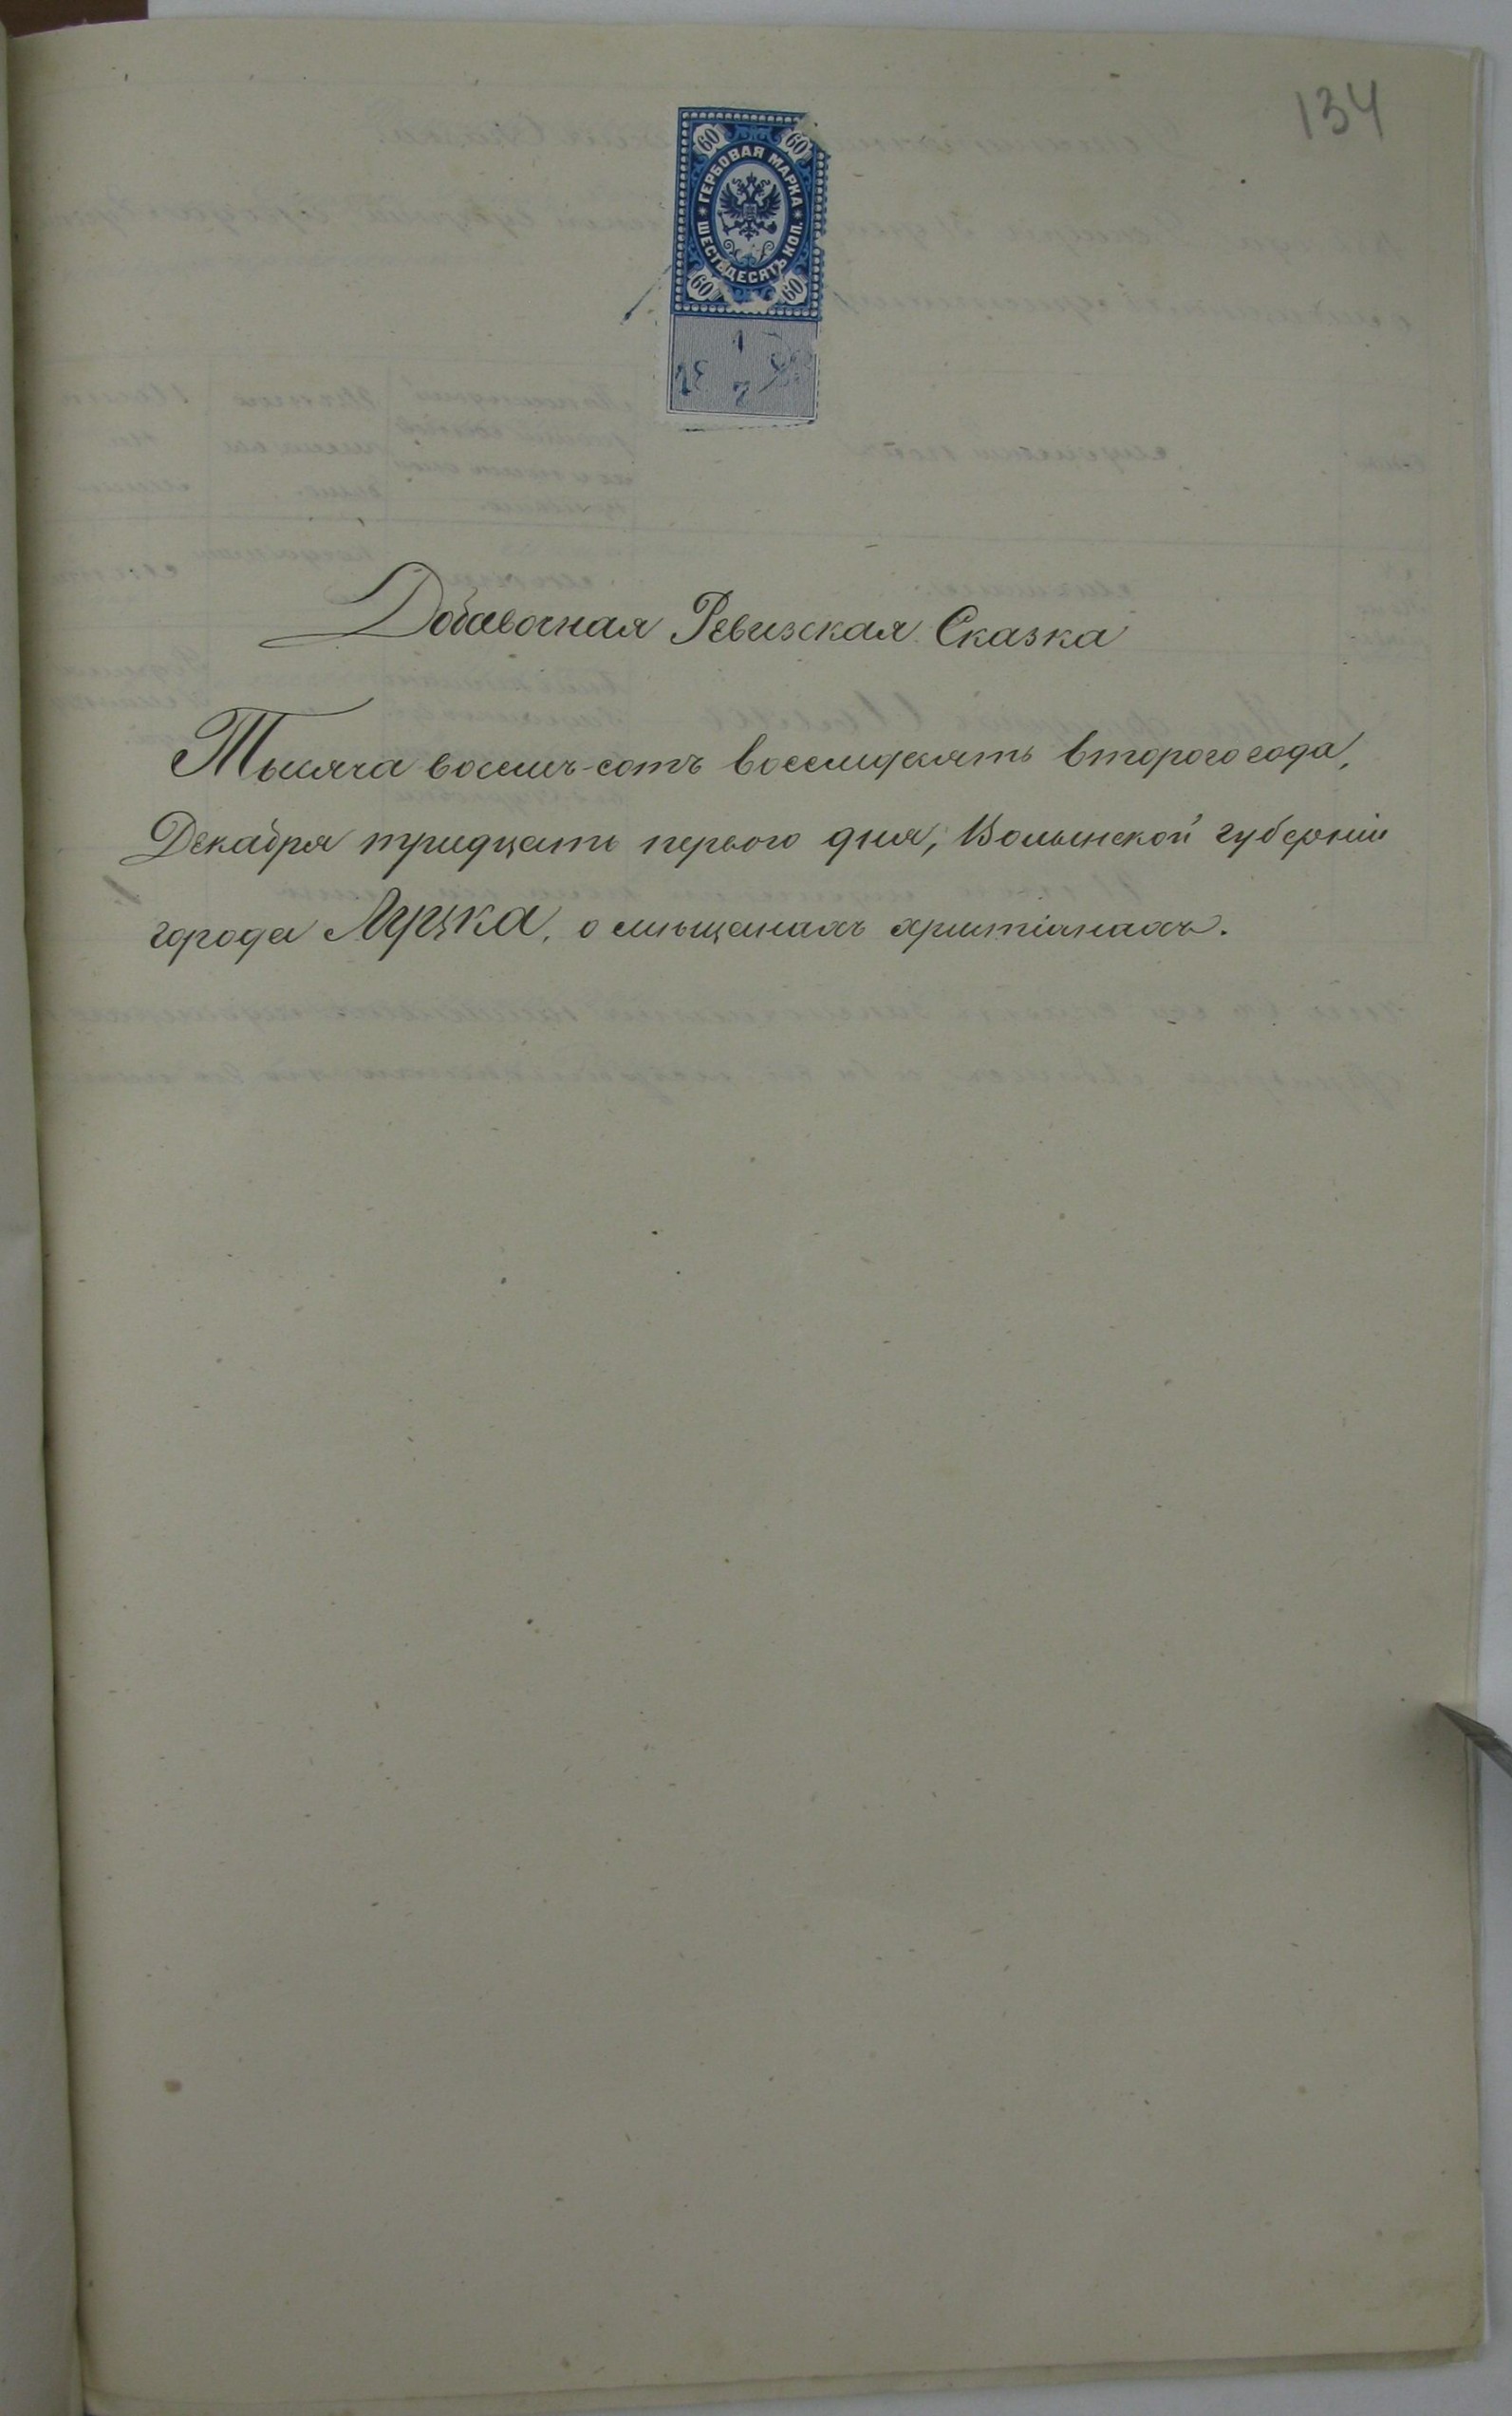 134
60 60
ГЕРБОВАЯ МАРКА
ШЕСТЬДЕСЯТЪ КОП.
60 60
Добавочная Ревизская Сказка
Тысяча восемь-сотъ восемьдесятъ второго года,
Декабря тридцать первого дня, Волынской губерніи
города Луцка, о мѣщанахъ христіанахъ.